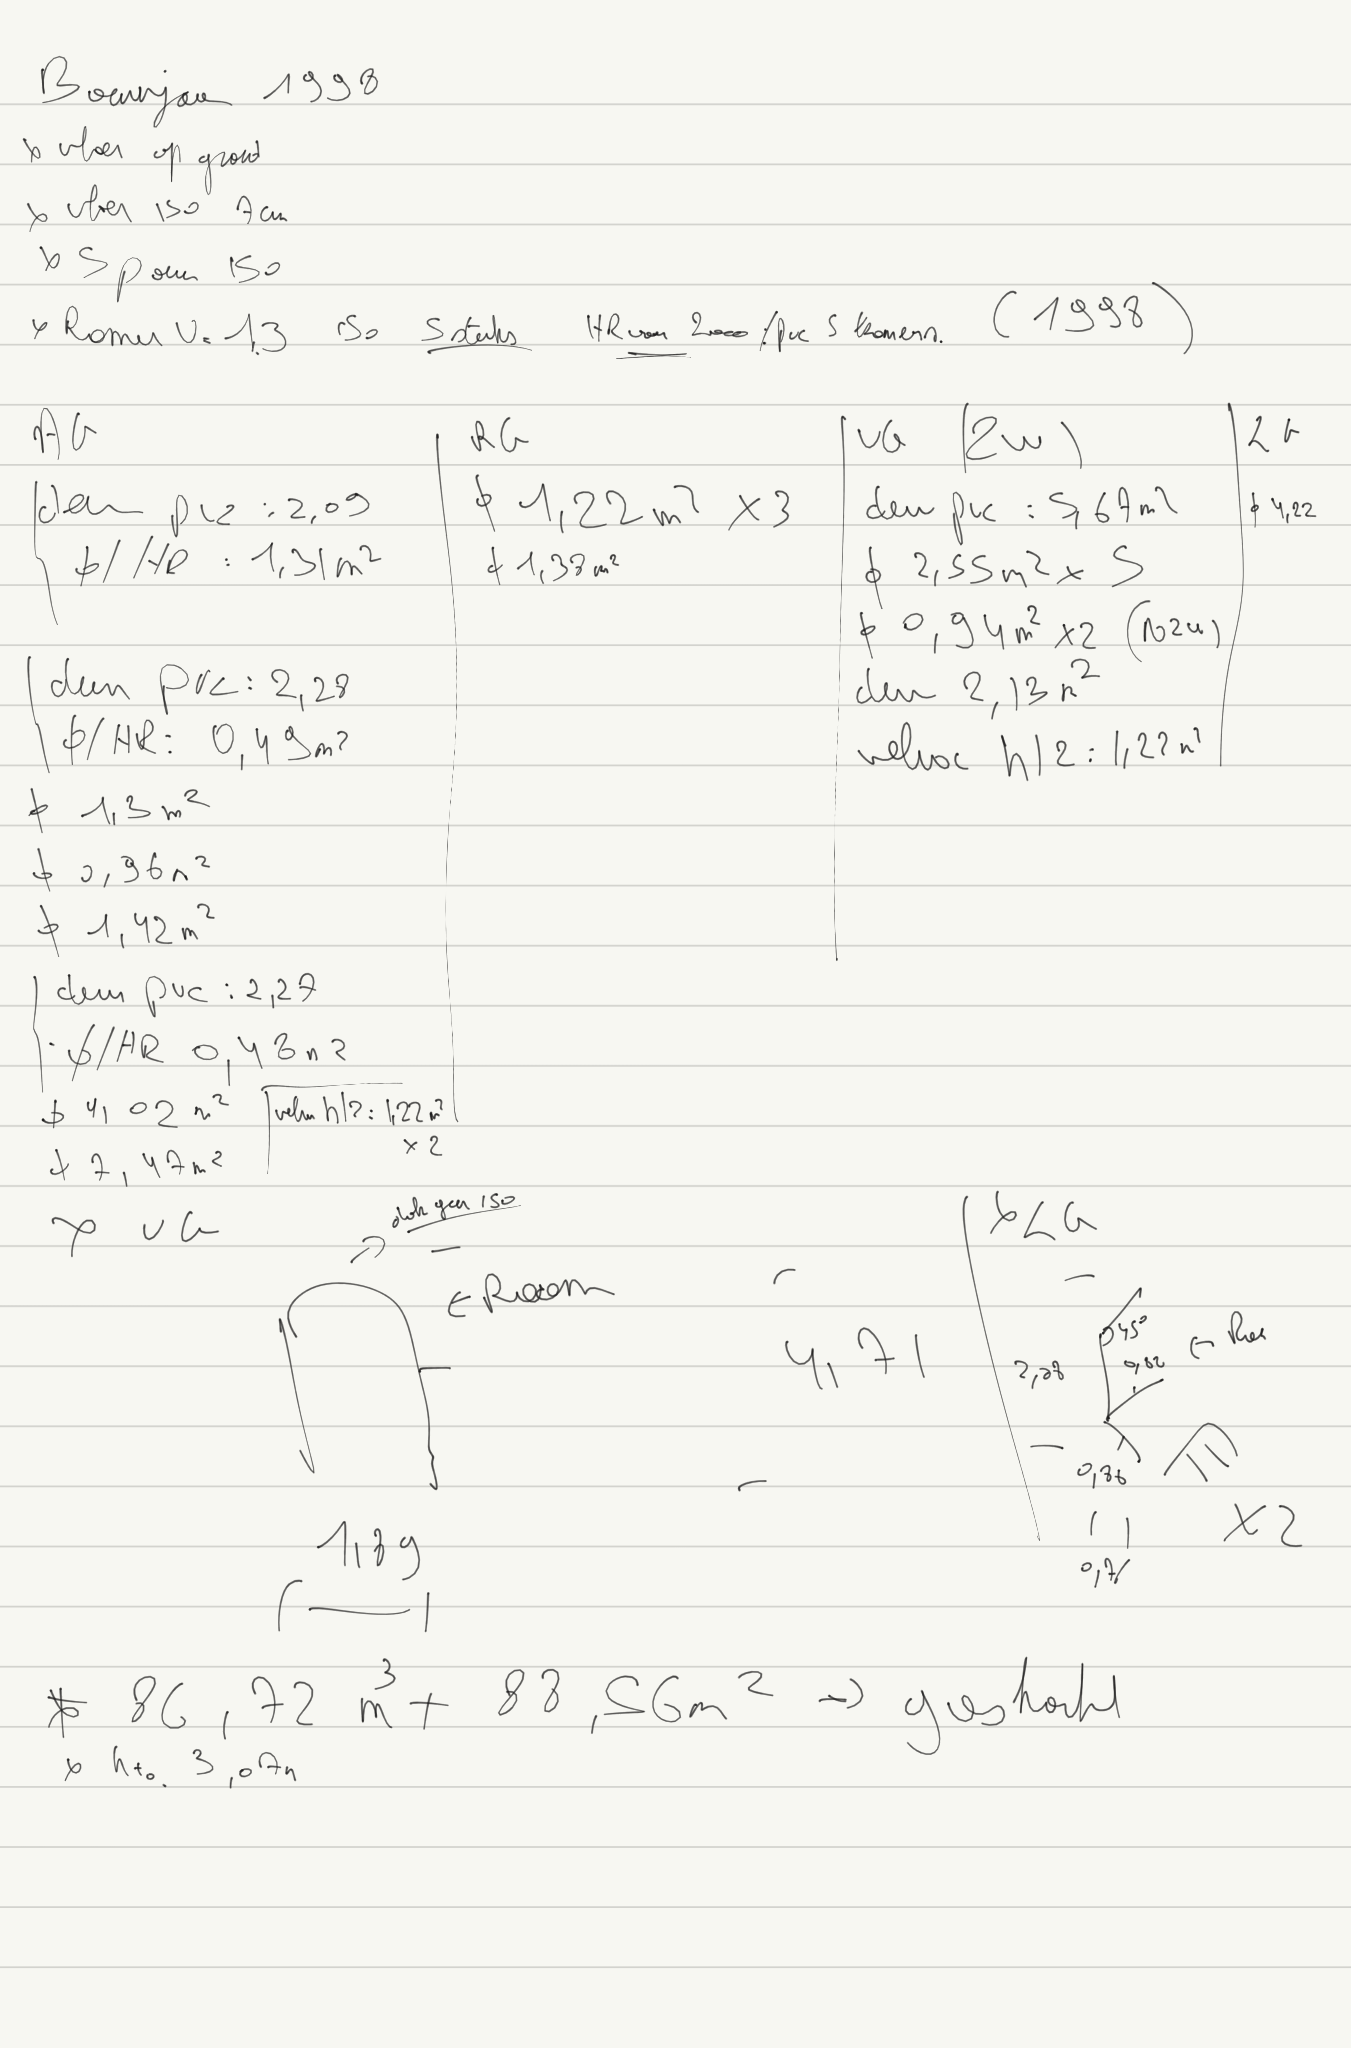 Bouwjaar 1998
x vloer op grond
x vloer iso 7cm
x Spouw iso
x Ramen U= 1,3 iso 5 stuks HR van 2000 /: pvc 5 kamers. (1998)
AG
deur pvc : 2,09
/HR : 1,31m²
deur pvc : 2,28
/HR : 0,49m²
1,3m²
0,96m²
1,42m²
deur pvc : 2,27
/HR 0,48m²
4,02m²
7,47m²
velux h/2 : 1,22m²
x2
RG
1,22m² x3
1,38m²
VG (ZW)
deur pvc : 5,67m²
2,55m² x 5
0,94m² x2
deur 2,13m²
velux h/2 : 1,22m²
LG
4,22
x VG
dak geen iso
← Raam
4,71
1,89
x LG
45°
2,08
0,82
←
0,86
0,76
x2
* 86,72 m³ + 88,56m² →
x 3,07m